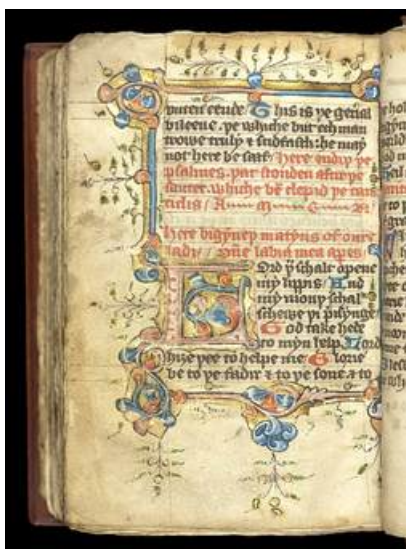 outen eende. This is þe gen̄al
bileeue. þe whiche but ech man
trowe truly & stidfastli: he may
not here be saaf. here endiþ þe
psalmes. þat stonden aftir þe
sauter. whiche bē clepid þe can
ticlis / Amen
Here bigynneþ matyns of oure
ladi / Dn̄e labia mea apies
Lord þu schalt opene
my lippis And
my mouþ schal
schewe þi preisynge
God take hede
to myn help. Lord
hize þee to helpe me Glorie
be to þe fadir & to þe sone & to